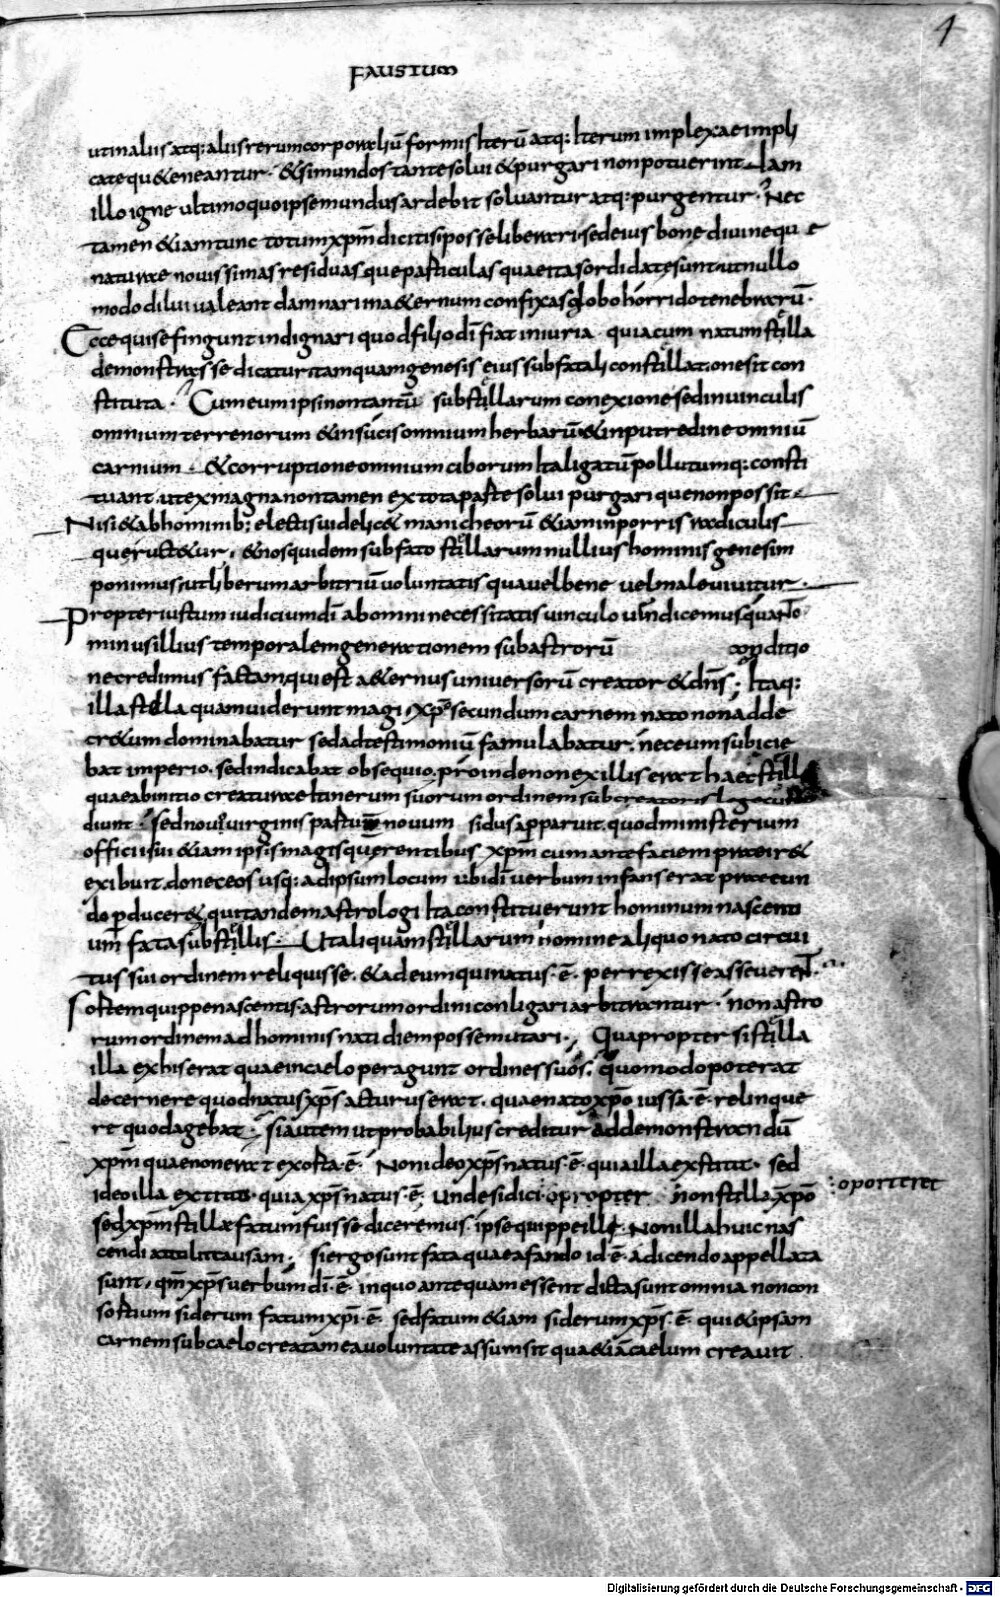 4
FAUSTUM
ut in aliis atq: aliis rerum corporaliū formis Iterū atq: Iterum implexae impli
cateque teneantur. & si mundo stante solui & purgari non potuerint. Iam
illo igne ultimo quo ipse mundus ardebit soluantur atq: purgentur. Nec
tamen &iam tunc totum xpm̄ dicitis posse liberari. sed eius bone diuineque
naturae nouissimas residuas que particulas quae ita sordidate sunt. ut nullo
modo dilui ualeant damnari in a&ernum confixas globo horrido tenebrarū.
Ecce qui se fingunt indignari quod filio dī fiat iniuria quia cum natum stella
demonstrasse dicatur. tamquam genesis eius sub fatali constellatione sit con
stituta. Cum eum ipsi non tantū sub stellarum conexione sed in uinculis
omnium terrenorum & in sucis omnium herbarū & in putredine omniū
carnium. & corruptione omnium ciborum Ita ligatū pollutumq: consti
tuant. ut ex magna non tamen ex tota parte solui purgari que non possit.
Nisi & ab hominib; electis uidelic& manicheorū &iam in porris radiculis
que ruct&ur. & nos quidem sub fato stellarum nullius hominis genesim
ponimus. ut liberum arbitriū uoluntatis qua uel bene uel male uiuitur.
Propter iustum iudicium dī ab omni necessitatis uinculo uindicemus quanto
minus illius temporalem generationem sub astrorū conditio
ne credimus factam qui est a&ernus uniuersorū creator & dn̄s; Itaq:
illa stella quam uiderunt magi. xpō secundum carnem nato non ad de
cr&um dominabatur sed ad testimoniū famulabatur. nec eum subicie
bat imperio. sed indicabat obsequio. proinde non ex illis erat haec stellis
quae ab initio creaturae Itinerum suorum ordinem sub creatoris lege custo
diunt. sed nouo uirginis partu nouum sidus apparuit. quod ministerium
officii sui &iam ipsis magis querentibus xpm̄ cum ante faciem praeir&
exibuit. donec eos usq: ad ipsum locum ubi dī uerbum infans erat praeeun
do pducer& qui tandem astrologi Ita constituerunt hominum nascenti
um fata sub stellis. Ut aliquam stellarum homine aliquo nato circui
tus sui ordinem reliquisse. & ad eum qui natus .ē. perrexisse asseuerent.
Sortem quippe nascentis. astrorum ordini conligari arbitrantur. non astro
rum ordinem ad hominis nati diem posse mutari. Quapropter si stella
illa ex his erat quae in caelo peragunt ordines suos. quomodo poterat
decernere quod natus xps̄ acturus erat. quae nato xpō iussa .ē. relinque
re quod agebat. si autem ut probabilius creditur ad demonstrandū
xpm̄ quae non erat exorta .ē. Non ideo xps̄ natus .ē. quia illa exstitit. sed
ideo illa extitit. quia xps̄ natus .ē. unde si dici propter non stella xpō
: oporteret
sed xpm̄ stellae fatum fuisse diceremus. ipse quippe illi. Non illa huic nas
cendi attulit causam. si ergo sunt fata quae a fando id .ē. a dicendo appellata
sunt, qm̄ xps̄ uerbum dī .ē. in quo antequam essent dicta sunt omnia non con
sortium siderum fatum xpī .ē. sed fatum &iam siderum xps̄ .ē. qui & ipsam
carnem sub caelo creatam ea uoluntate assumsit qua &iā caelum creauit.
Digitalisierung gefördert durch die Deutsche Forschungsgemeinschaft - DFG